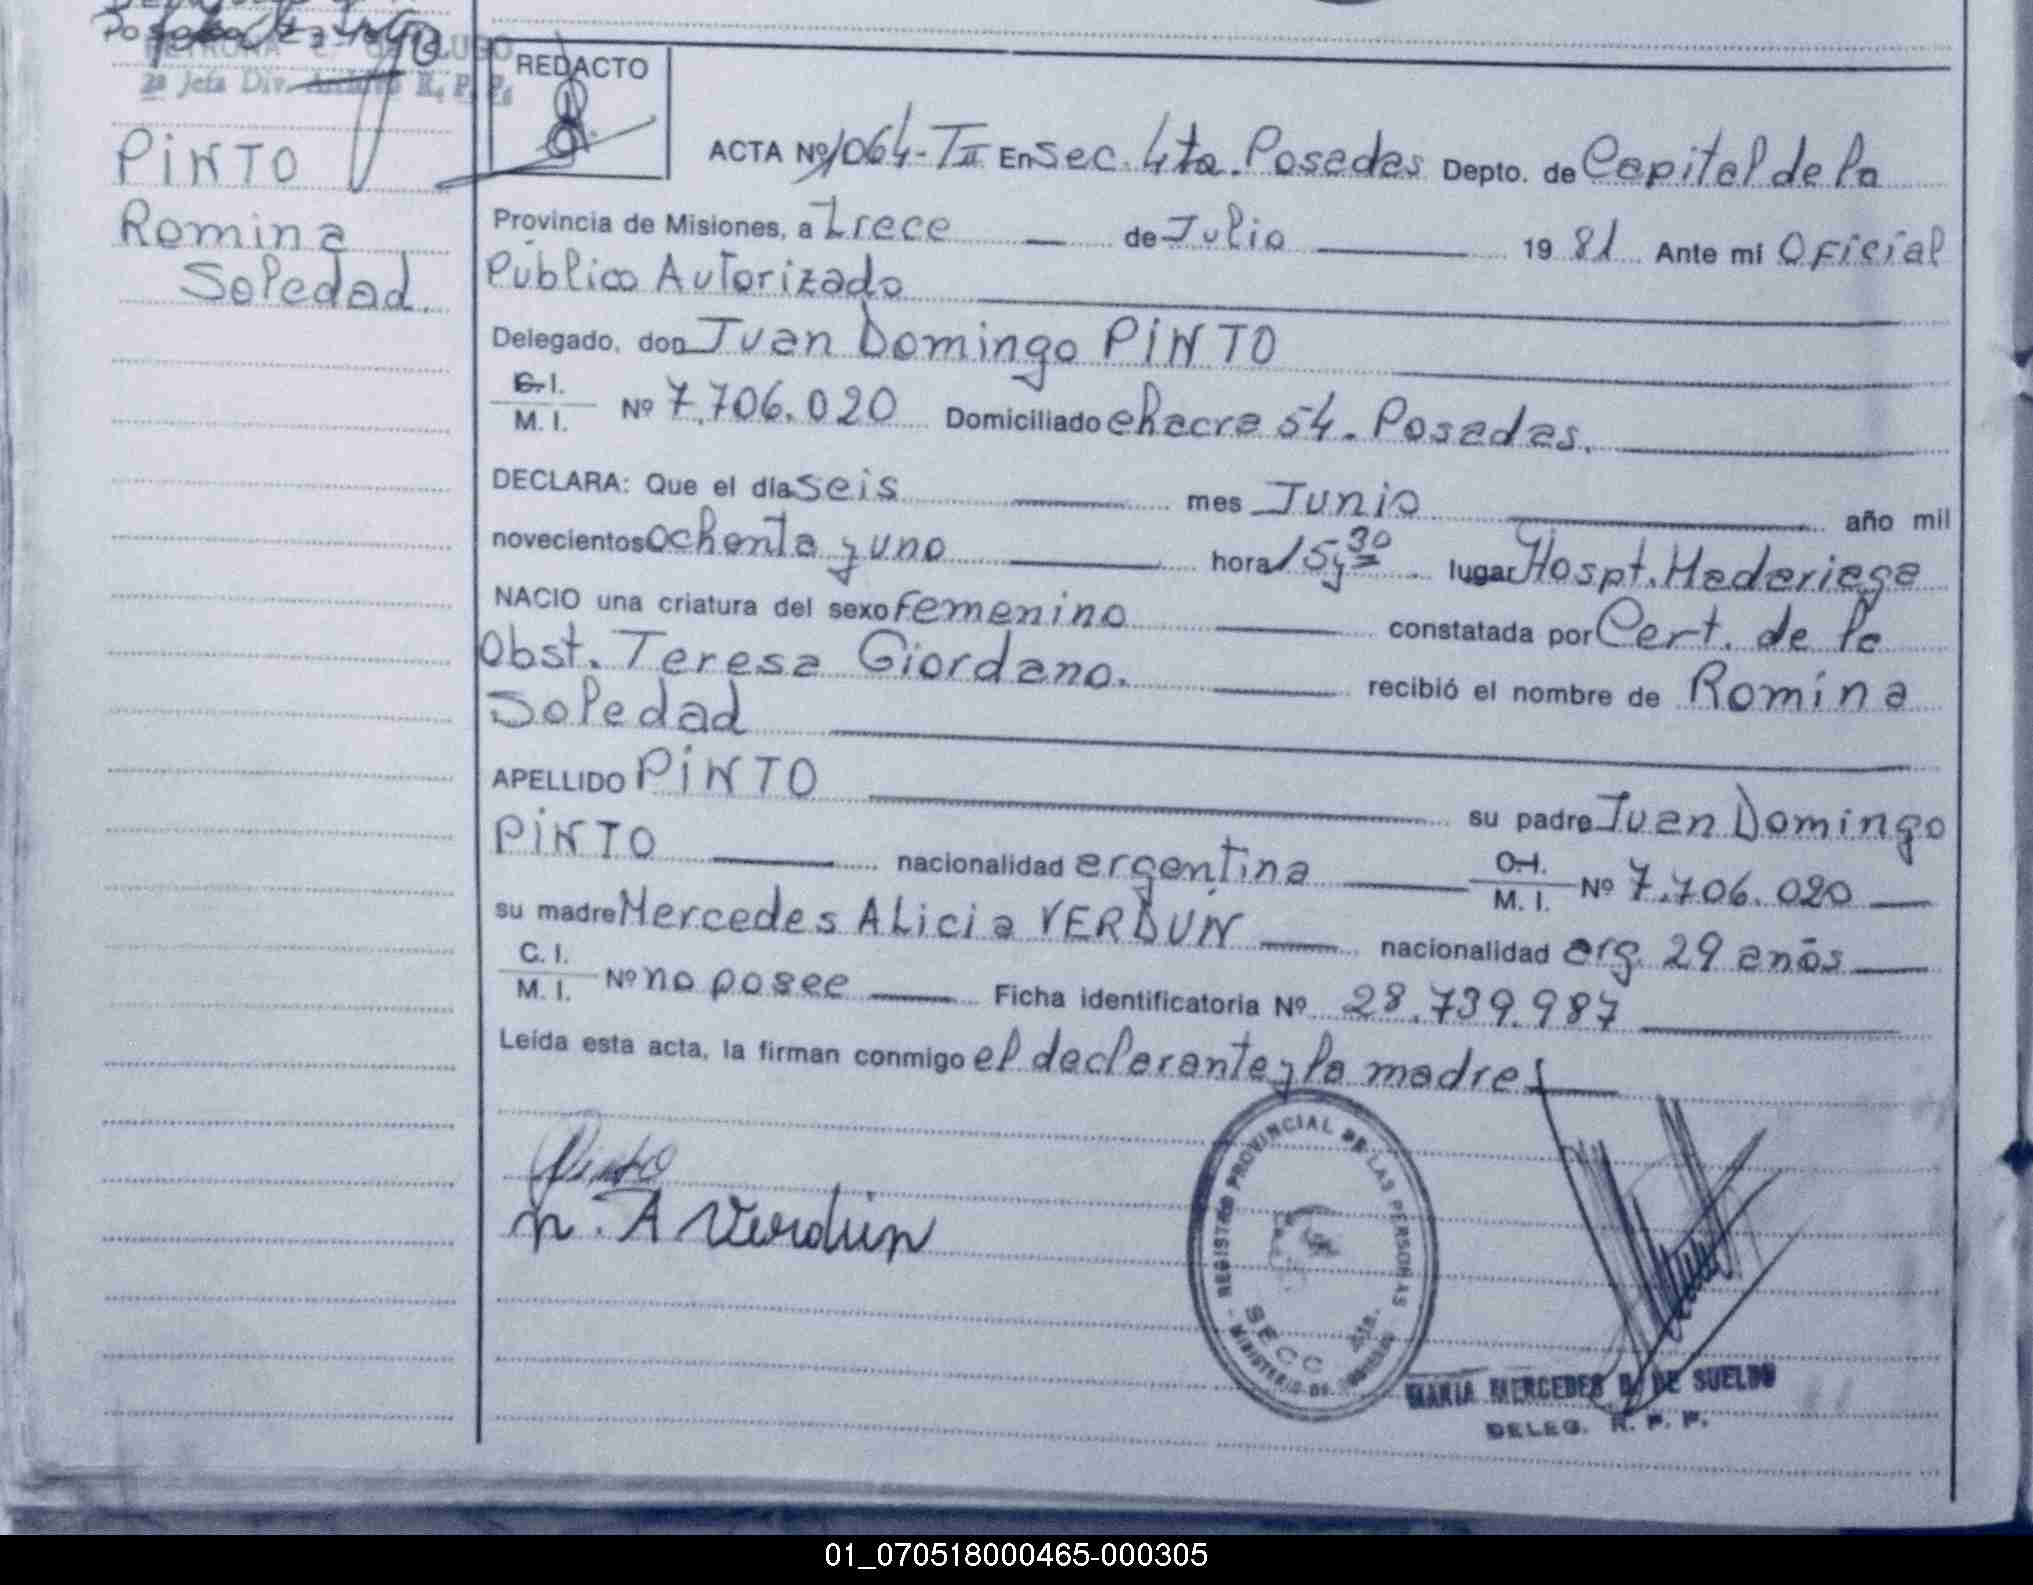 2ª Jefa Div. Archivo R. P. P.
PINTO
Romina
Soledad.
REDACTO
ACTA Nº 1064-TII En Sec. 4ta. Posadas Depto. de Capital de la
Provincia de Misiones, a trece de Julio 1981 Ante mi Oficial
Público Autorizado
Delegado, don Juan Domingo PINTO
C.I.
M. I. Nº 7.706.020 Domiciliado chacra 54. Posadas.
DECLARA: Que el día seis mes Junio año mil
novecientos ochenta y uno hora 15 y 30 lugar Hospt. Madariaga
NACIO una criatura del sexo femenino constatada por Cert. de la
Obst. Teresa Giordano. recibió el nombre de Romina
Soledad
APELLIDO PINTO su padre Juan Domingo
PINTO nacionalidad argentina C.I. M. I. Nº 7.706.020
su madre Mercedes ALicia VERDUN nacionalidad arg. 29 años
C. I.
M. I. Nº no posee Ficha identificatoria Nº 28.739.987
Leída esta acta, la firman conmigo el declarante y la madre
Pinto
M. A Verdún
REGISTRO PROVINCIAL DE LAS PERSONAS
SECC 4ta.
MINISTERIO DE GOBIERNO
MARIA MERCEDES D. DE SUELDO
DELEG. R. P. P.
01_070518000465-000305